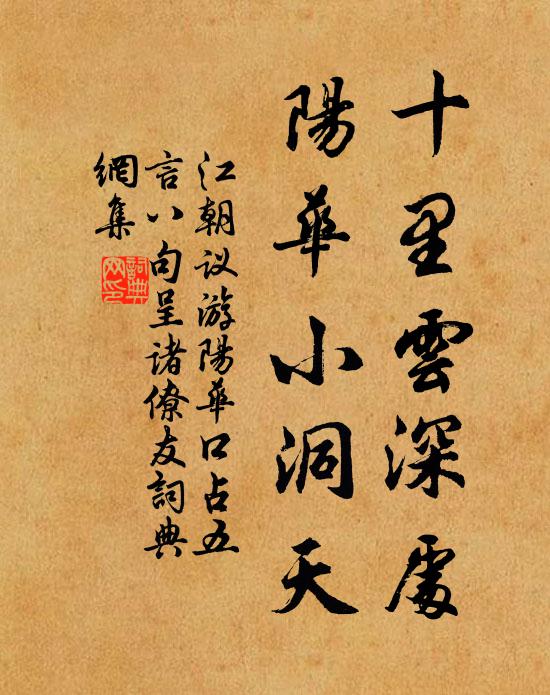 十里雲深處
陽華小洞天
江朝议游陽華口占五
言八句呈诸僚友詞典
網集
詞典
网印